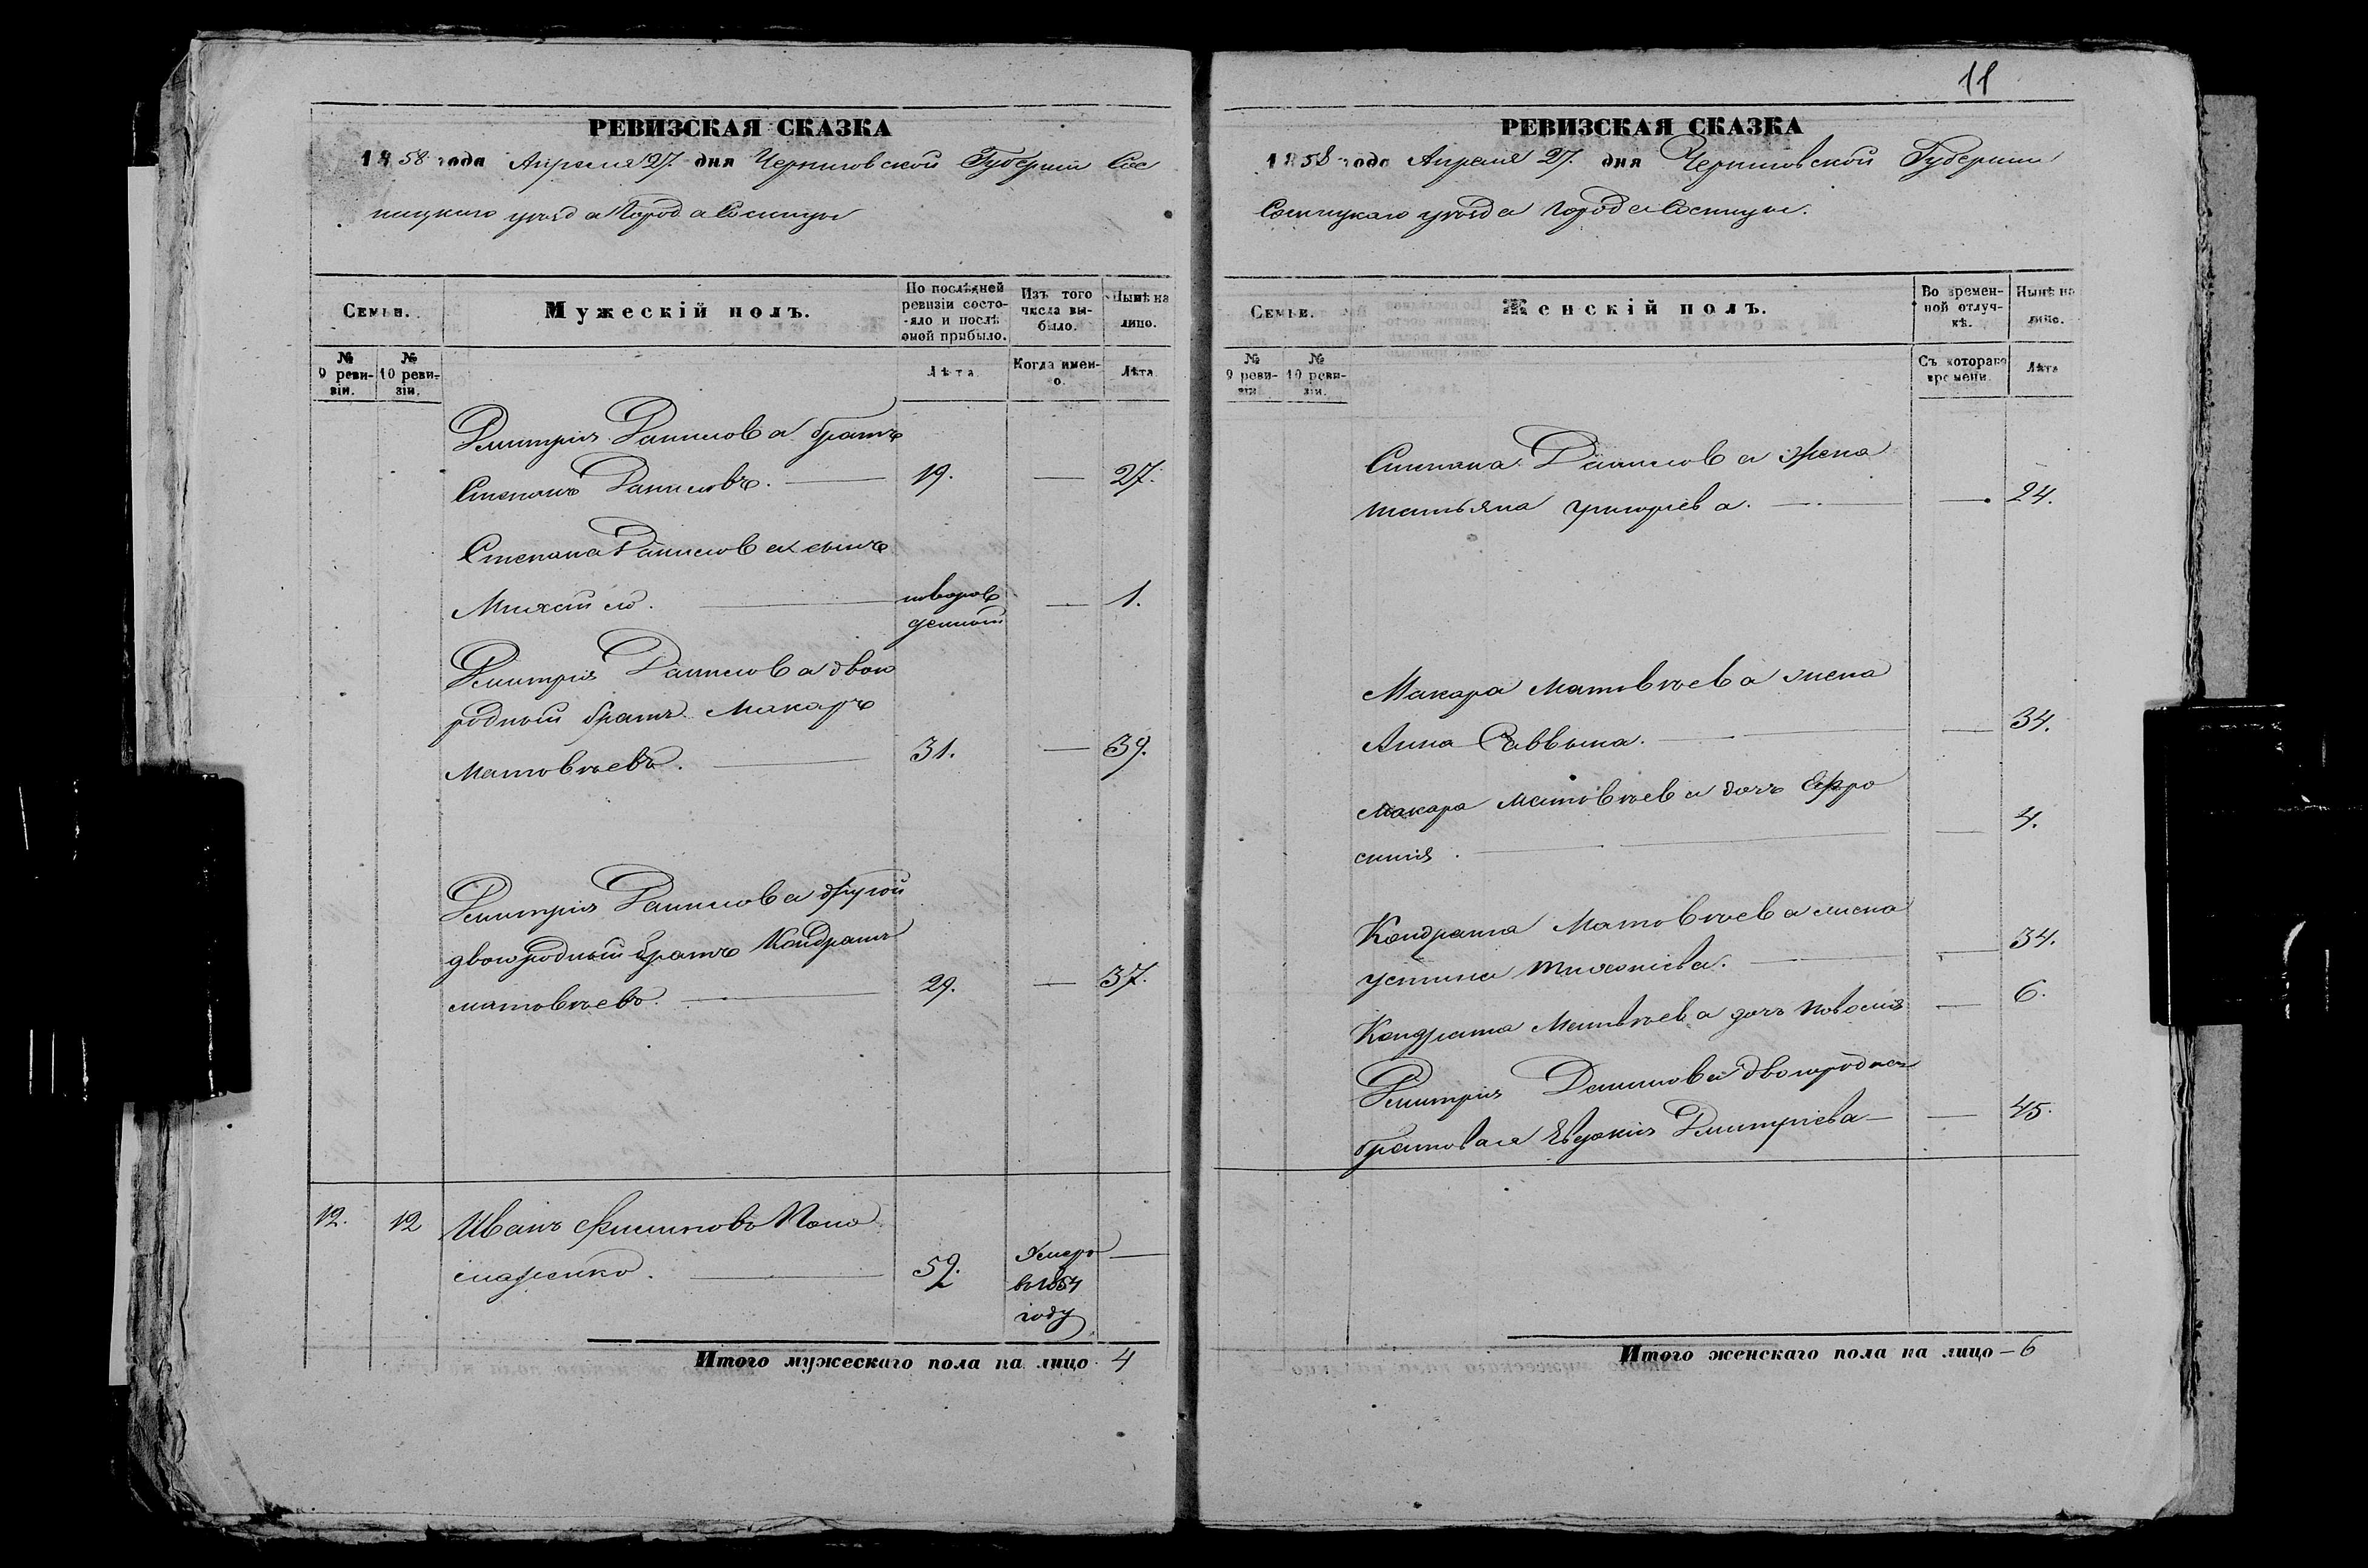 11
РЕВИЗСКАЯ СКАЗКА
1858 года Апреля 27. дня Черниговской Губерніи Сос
ницкаго уѣзда Города Сосницы
Семьи.
Мужескій полъ.
По послѣдней ревизіи состояло и послѣ оной прибыло.
Изъ того числа выбыло.
Нынѣ на лицо.
№ 9 ревизіи.
№ 10 ревизіи.
Лѣта.
Когда именно.
Лѣта
Дмитрія Данилова братъ
Степанъ Даниловъ. — 19. — 27.
Степана Данилова сынъ
Михайло. — новорож
денный — 1.
Дмитрія Данилова двою
родный братъ Макаръ
Матвѣевъ. — 31. — 39.
Дмитрія Данилова другой
двоюродный братъ Кондратъ
Матвѣевъ. — 29. — 37.
12. 12 Иванъ Филиповъ Поно
маренко. — 59. Умеръ —
въ 1854
году
Итого мужескаго пола на лицо 4
РЕВИЗСКАЯ СКАЗКА
1858 года Апреля 27. дня Черниговской Губерніи
Сосницкаго уѣзда Города Сосницы.
Семьи.
Женскій полъ.
Во временной отлучкѣ.
Нынѣ на лицо.
№ 9 ревизіи
№ 10 ревизіи.
Съ котораго времени
Лѣта
Степана Данилова жена
Татьяна Григорьева. — 24.
Макара Матвѣева жена
Анна Саввына. — 34.
Макара Матвѣева дочь Ефро
синія. — 4.
Кондрата Матвѣева жена
Устина — 34.
Кондрата Матвѣева дочь — 6.
Дмитрія Данилова двоюродная
братовая Евдокія Дмитріева — 45.
Итого женскаго пола на лицо — 6